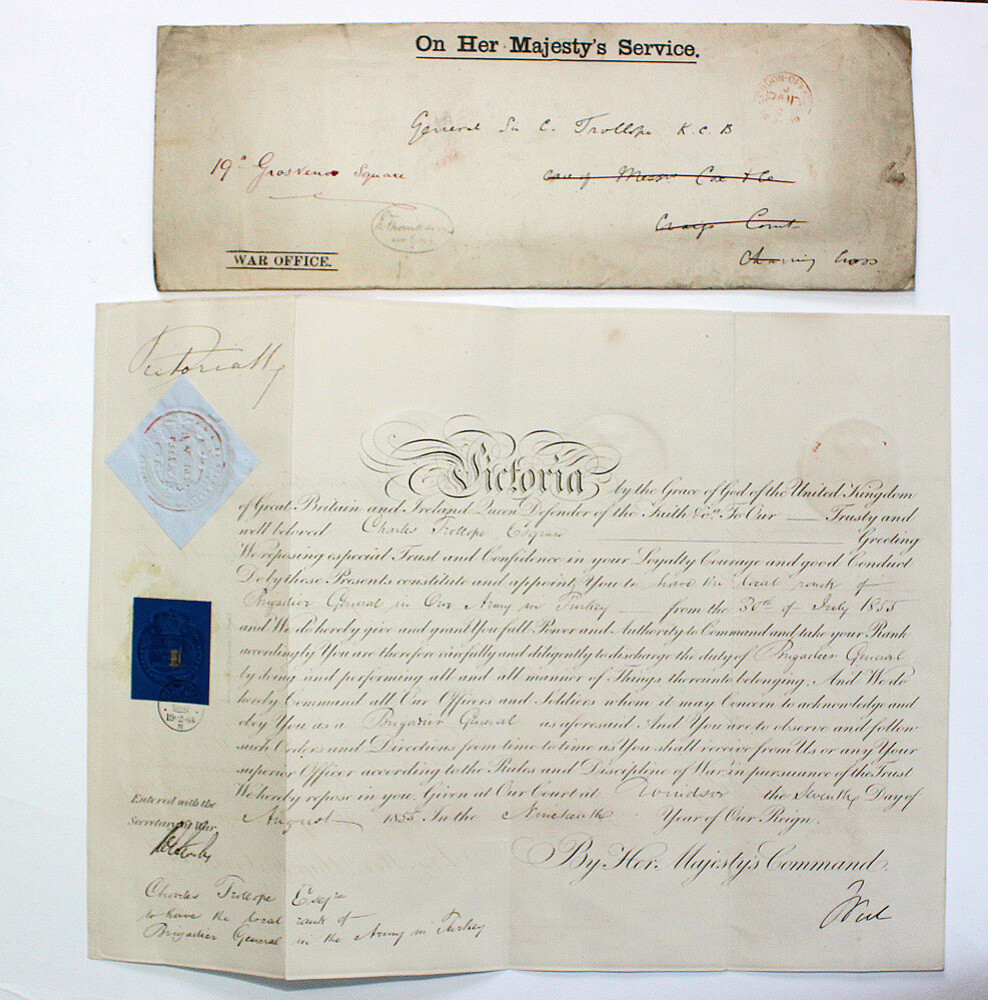 On Her Majesty's Service.
General Sir C. Trollope K.C.B
19a Grosvenor Square
care of Messrs Cox & Co
Craigs Court
Charing Cross
WAR OFFICE.
Victoria R
Victoria by the Grace of God of the United Kingdom
of Great Britain and Ireland Queen Defender of the Faith &c. To Our Trusty and
well beloved Charles Trollope Esquire Greeting
We reposing especial Trust and Confidence in your Loyalty Courage and good Conduct
Do by these Presents constitute and appoint You to have the local rank of
Brigadier General in Our Army in Turkey from the 30th of July 1855
and We do hereby give and grant You full Power and Authority to Command and take your Rank
accordingly You are therefore carefully and diligently to discharge the duty of Brigadier General
by doing and performing all and all manner of Things thereunto belonging. And We do
hereby Command all Our Officers and Soldiers whom it may Concern to acknowledge and
obey You as a Brigadier General as aforesaid. And You are to observe and follow
such Orders and Directions from time to time as You shall receive from Us or any Your
superior Officer according to the Rules and Discipline of War in pursuance of the Trust
We hereby repose in you. Given at Our Court at Windsor the Seventh Day of
August 1855 In the Nineteenth Year of Our Reign.
Entered with the
Secretary at War
By Her Majesty's Command.
Charles Trollope Esqre
to have the local rank of
Brigadier General in the Army in Turkey